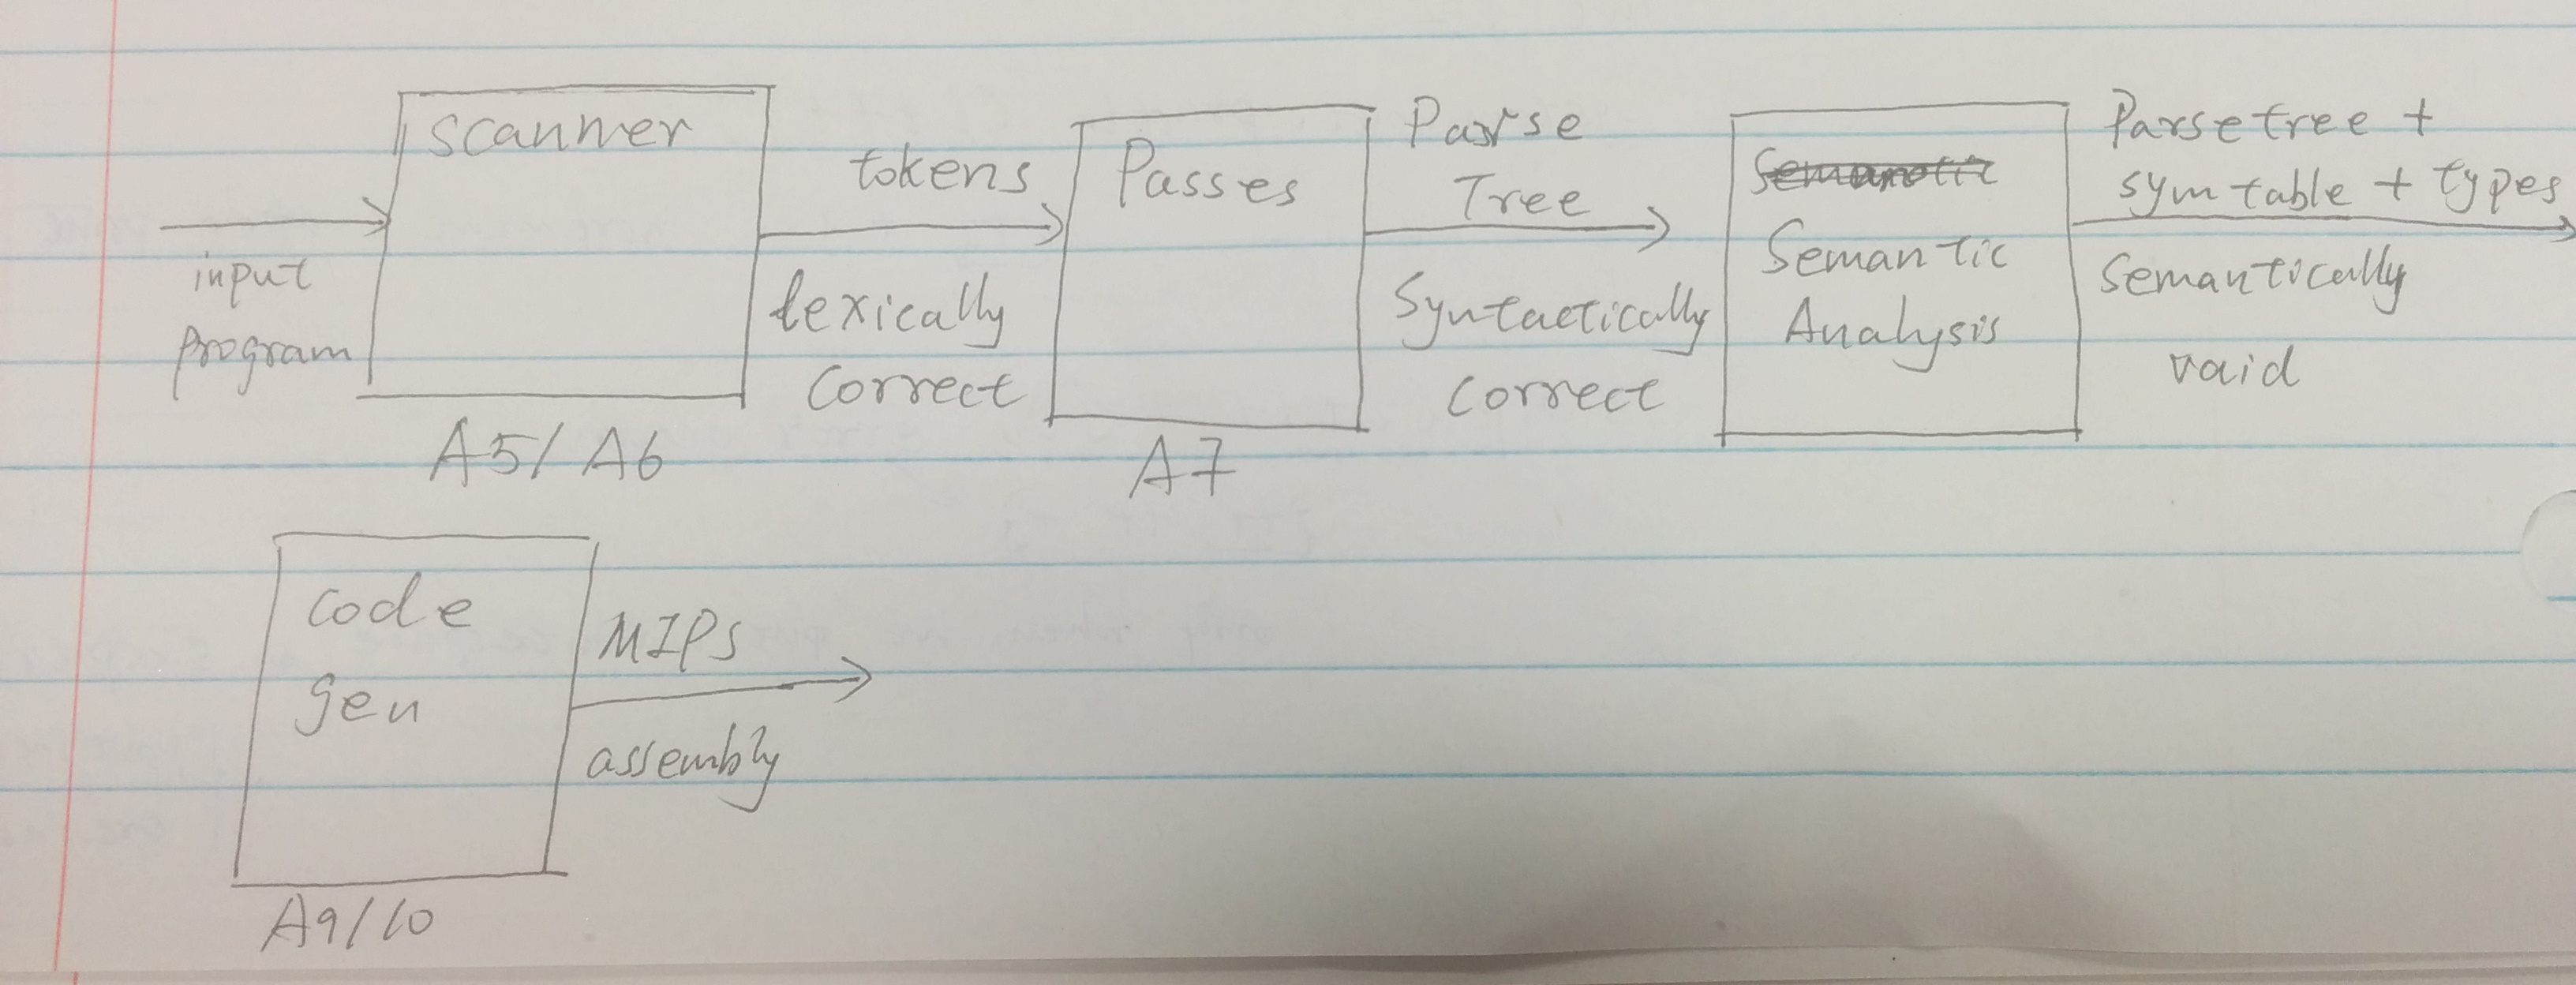 scanner
input
program
A5/A6
tokens
lexically
correct
Passes
A7
Parse
Tree
Syntactically
correct
Semantic
Analysis
Parsetree +
symtable + types
Semantically
vaid
code
gen
A9/10
MIPS
assembly